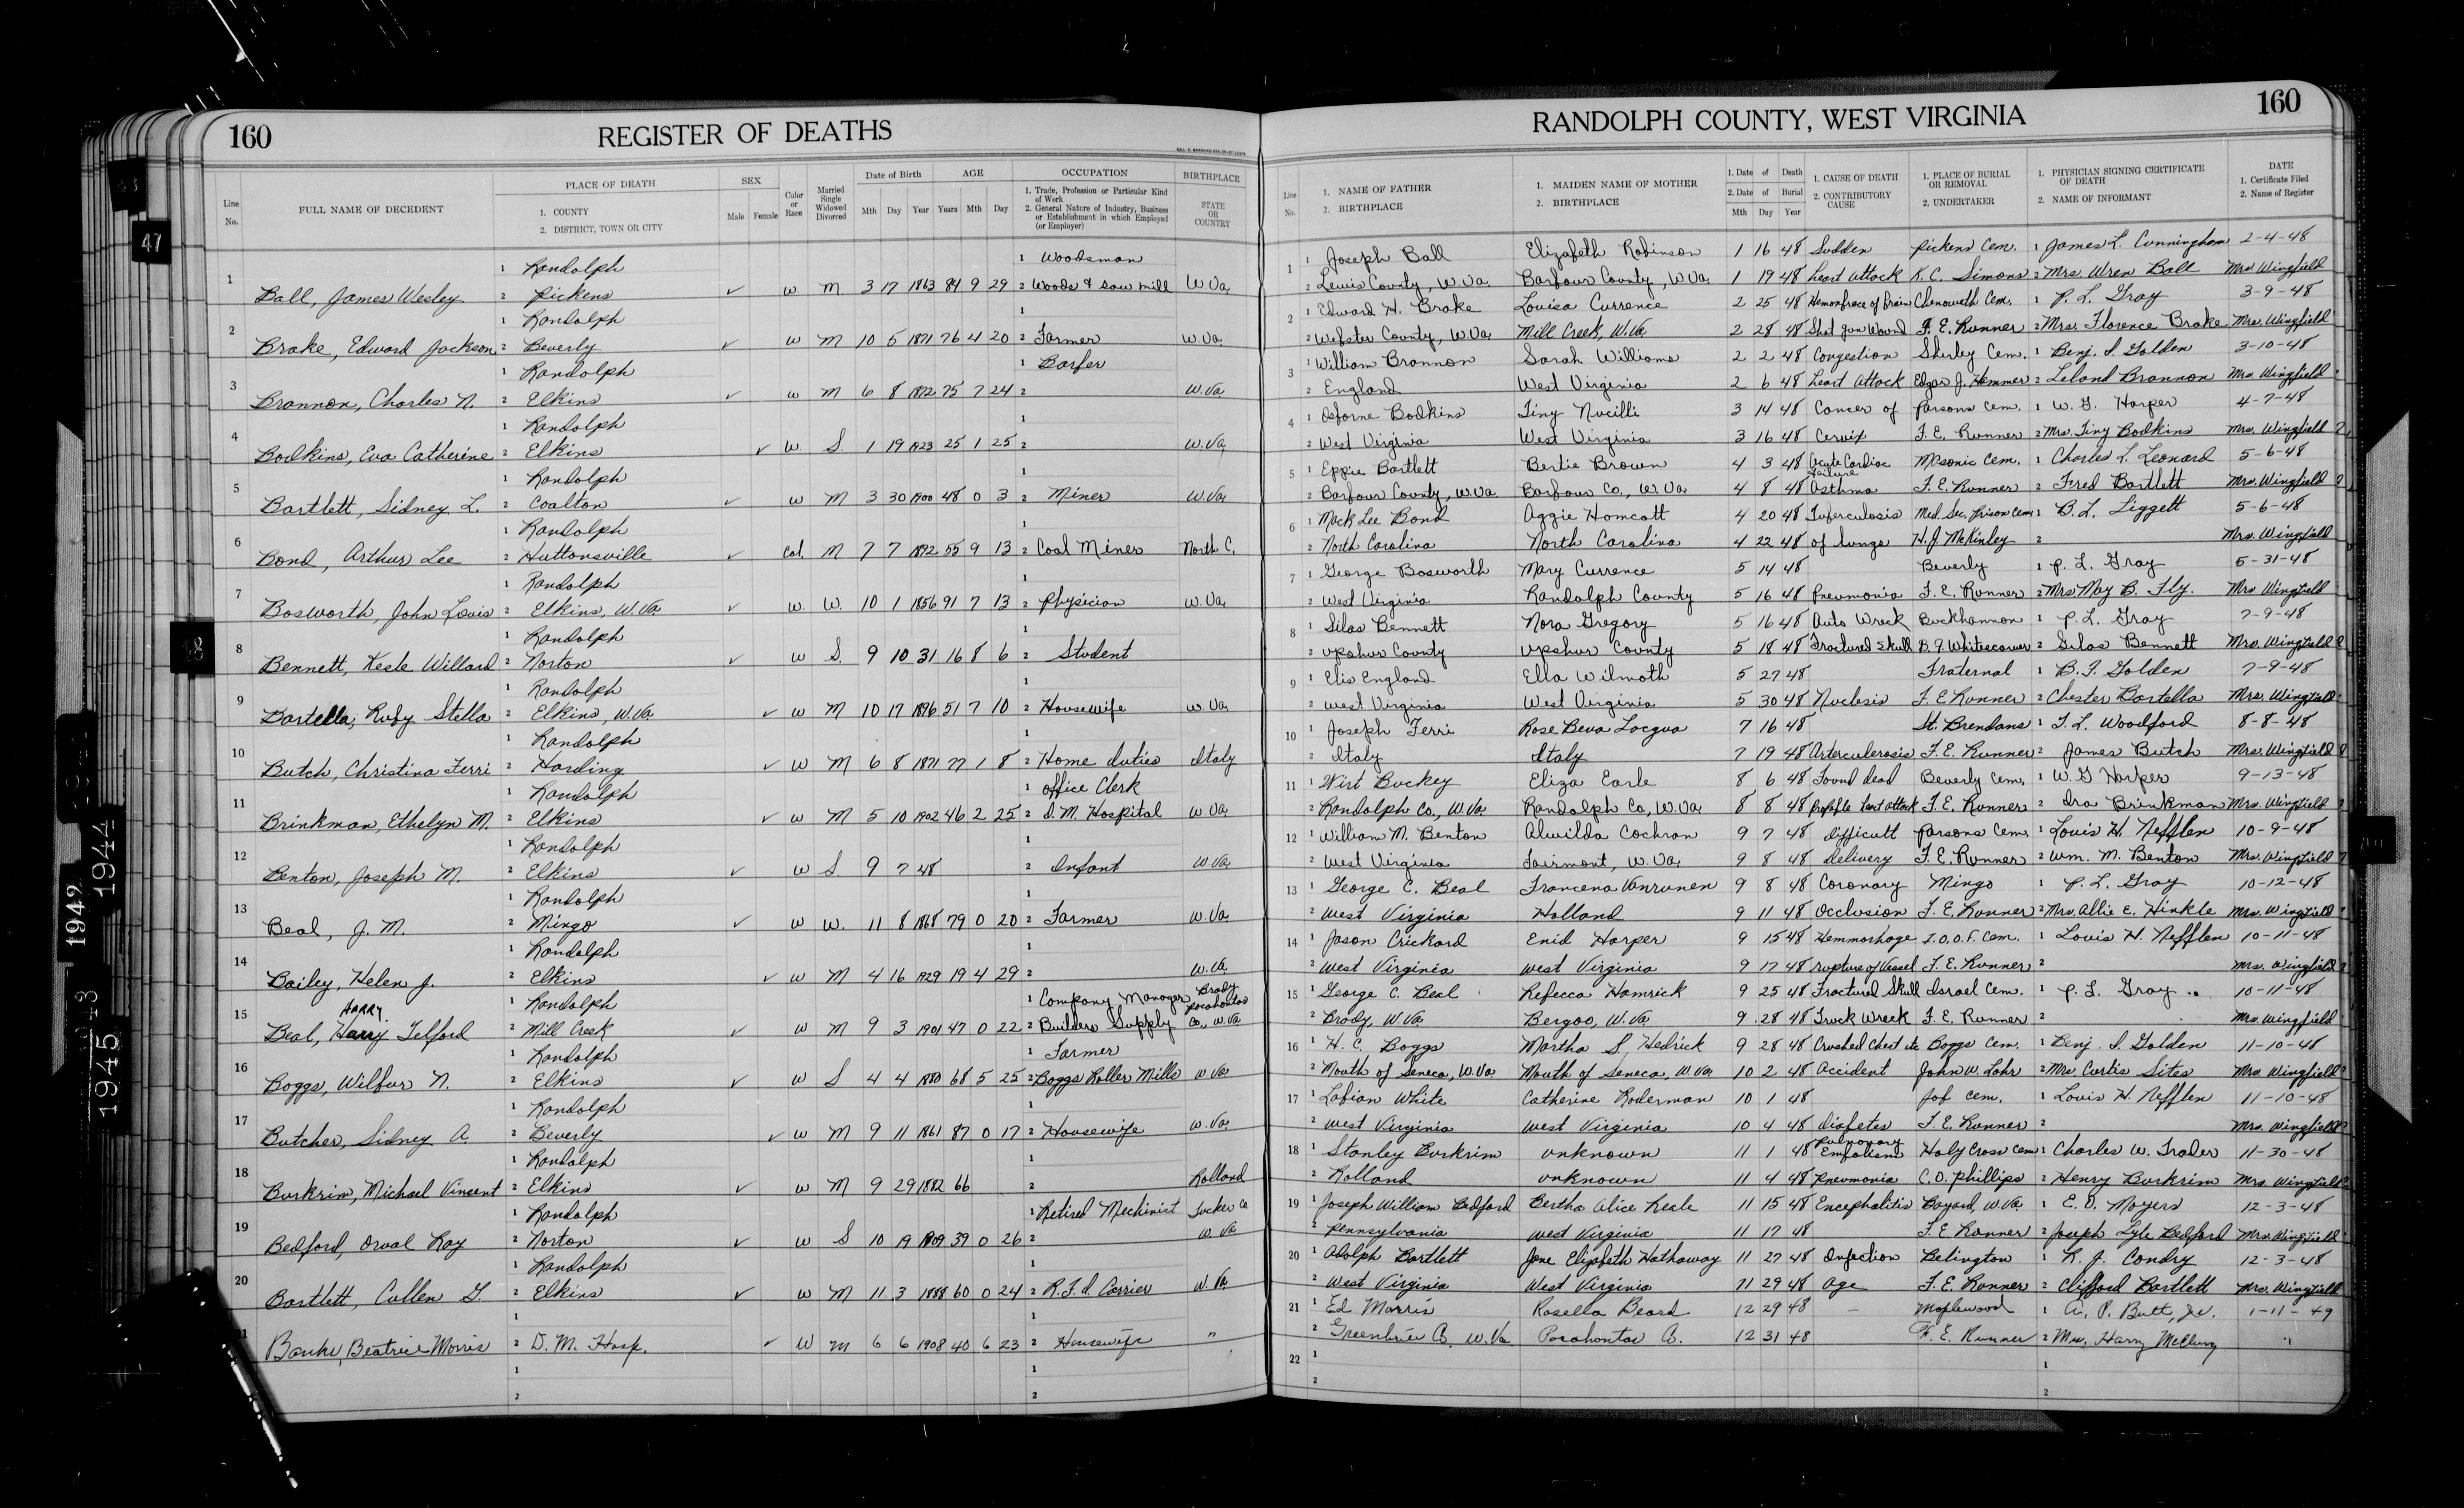 160
REGISTER OF DEATHS
Line No.
FULL NAME OF DECEDENT
PLACE OF DEATH
1. COUNTY
2. DISTRICT, TOWN OR CITY
SEX
Male Female
Color or Race
Married Single Widowed Divorced
Date of Birth
Mth Day Year
AGE
Years Mth Day
OCCUPATION
1. Trade, Profession or Particular Kind of Work
2. General Nature of Industry, Business or Establishment in which Employed (or Employer)
BIRTHPLACE
STATE OR COUNTRY
1 Randolph 1 Woodsman
1 Ball, James Wesley 2 Pickens ✓ W M 3 17 1863 84 9 29 2 Woods & saw mill W Va.
1 Randolph 1
2 Brake, Edward Jackson 2 Beverly ✓ W M 10 5 1871 76 4 20 2 Farmer W Va.
1 Randolph 1 Barber
3 Brannon, Charles N. 2 Elkins ✓ W M 6 8 1872 75 7 24 2 W. Va.
1 Randolph 1
4 Bodkins, Eva Catherine 2 Elkins ✓ W. S. 1 19 1923 25 1 25 2 W. Va.
1 Randolph 1
5 Bartlett, Sidney L. 2 Coalton ✓ W M 3 30 1900 48 0 3 2 Miner W. Va.
1 Randolph 1
6 Bond, Arthur Lee 2 Huttonsville ✓ Col. M 7 7 1892 55 9 13 2 Coal Miner North C.
1 Randolph 1
7 Bosworth, John Lovis 2 Elkins, W. Va. ✓ W. W. 10 1 1856 91 7 13 2 Physician W. Va.
1 Randolph 1
8 Bennett, Kesle Willard 2 Norton ✓ W S. 9 10 31 16 8 6 2 Student
1 Randolph 1
9 Bartella, Ruby Stella 2 Elkins, W. Va. ✓ W M 10 17 1896 51 7 10 2 Housewife W. Va.
1 Randolph 1
10 Butch, Christina Ferri 2 Harding ✓ W M 6 8 1871 77 1 8 2 Home duties Italy
1 Randolph 1 Office Clerk
11 Brinkman, Ethelyn M. 2 Elkins ✓ W M 5 10 1902 46 2 25 2 D. M. Hospital W. Va.
1 Randolph 1
12 Benton, Joseph M. 2 Elkins ✓ W S. 9 7 48 2 Infant W. Va.
1 Randolph 1
13 Beal, J. M. 2 Mingo ✓ W W. 11 8 1868 79 0 20 2 Farmer W. Va.
1 Randolph 1
14 Bailey, Helen J. 2 Elkins ✓ W M 4 16 1929 19 4 29 2 W. Va.
HARRY 1 Randolph 1 Company Manager Brady Pocahontas
15 Beal, Harry Telford 2 Mill Creek ✓ W M 9 3 1901 47 0 22 2 Builders Supply Co., W. Va.
1 Randolph 1 Farmer
16 Boggs, Wilbur N. 2 Elkins ✓ W S 4 4 1880 68 5 25 2 Boggs Roller Mills W. Va.
1 Randolph 1
17 Butcher, Sidney A. 2 Beverly ✓ W M 9 11 1861 87 0 17 2 Housewife W. Va.
1 Randolph 1
18 Burkrim, Michael Vincent 2 Elkins ✓ W M 9 29 1882 66 2 Rolland
1 Randolph 1 Retired Mechinist Tucker Co
19 Bedford, Orval Ray 2 Norton ✓ W S 10 19 1909 39 0 26 2 W. Va.
1 Randolph 1
20 Bartlett, Cullen G. 2 Elkins ✓ W M 11 3 1888 60 0 24 2 R.F.D. Carrier W. Va.
1 1
Banks, Beatrice Morris 2 D. M. Hosp. ✓ W M 6 6 1908 40 6 23 2 Housewife "
1 1
2 2
160
RANDOLPH COUNTY, WEST VIRGINIA
Line No.
1. NAME OF FATHER
2. BIRTHPLACE
1. MAIDEN NAME OF MOTHER
2. BIRTHPLACE
1. Date of Death
2. Date of Burial
Mth Day Year
1. CAUSE OF DEATH
2. CONTRIBUTORY CAUSE
1. PLACE OF BURIAL OR REMOVAL
2. UNDERTAKER
1. PHYSICIAN SIGNING CERTIFICATE OF DEATH
2. NAME OF INFORMANT
DATE
1. Certificate Filed
2. Name of Register
1 1 Joseph Ball Elizabeth Robinson 1 16 48 Sudden Pickens Cem. 1 James L. Cunningham 2-4-48
2 Lewis County, W. Va. Barbour County, W. Va. 1 19 48 heart attack K. C. Simons 2 Mrs. Wren Ball Mrs Wingfield
2 1 Edward H. Brake Louisa Currence 2 25 48 Hemorhrage of Brain Chenoweth Cem. 1 P. L. Gray 3-9-48
2 Webster County, W. Va. Mill Creek, W. Va. 2 28 48 Shot gun Wound F. E. Runner 2 Mrs. Florence Brake Mrs. Wingfield
3 1 William Brannon Sarah Williams 2 2 48 Congestion Shirley Cem. 1 Benj. I. Golden 3-10-48
2 England West Virginia 2 6 48 heart attack Edgar J. Hammer 2 Leland Brannon Mrs Wingfield
4 1 Osborne Bodkins Tiny Nucilli 3 14 48 Cancer of Parsons Cem. 1 W. G. Harper 4-7-48
2 West Virginia West Virginia 3 16 48 Cervix F. E. Runner 2 Mrs. Tiny Bodkins Mrs. Wingfield
5 1 Eppie Bartlett Bertie Brown 4 3 48 Acute Cardiac Failure Masonic Cem. 1 Charles L. Leonard 5-6-48
2 Barbour County, W. Va. Barbour Co., W. Va. 4 8 48 Asthma F. E. Runner 2 Fred Bartlett Mrs. Wingfield
6 1 Mack Lee Bond Aggie Homcott 4 20 48 Tuberculosis Med. Sec. Prison Cem. 1 B. L. Liggett 5-6-48
2 North Carolina North Carolina 4 22 48 of lungs H. J. McKinley 2 Mrs. Wingfield
7 1 George Bosworth Mary Currence 5 14 48 Beverly 1 P. L. Gray 5-31-48
2 West Virginia Randolph County 5 16 48 Pneumonia F. E. Runner 2 Mrs May B. Fly. Mrs Wingfield
8 1 Silas Bennett Nora Gregory 5 16 48 Auto Wreck Buckhannon 1 P. L. Gray 7-9-48
2 Upshur County Upshur County 5 18 48 Fractured skull B. F. Whitescarver 2 Silas Bennett Mrs. Wingfield
9 1 Elis England Ella Wilmoth 5 27 48 Fraternal 1 B. I. Golden 7-9-48
2 West Virginia West Virginia 5 30 48 F. E. Runner 2 Chester Bartella Mrs. Wingfield
10 1 Joseph Ferri Rose Beva Locqua 7 16 48 St. Brendans 1 T. L. Woodford 8-8-48
2 Italy Italy 7 19 48 Arterculerosis F. E. Runner 2 James Butch Mrs. Wingfield
11 1 Wirt Buckey Eliza Earle 8 6 48 Found dead Beverly Cem. 1 W. G Harper 9-13-48
2 Randolph Co., W. Va. Randolph Co, W. Va. 8 8 48 Probable heart attack F. E. Runner 2 Ira Brinkman Mrs. Wingfield
12 1 William M. Benton Alwilda Cochran 9 7 48 difficult Parsons Cem. 1 Louis H. Nefflen 10-9-48
2 West Virginia Fairmont, W. Va. 9 8 48 delivery F. E. Runner 2 Wm. M. Benton Mrs. Wingfield
13 1 George C. Beal Francena Vanrunen 9 8 48 Coronary Mingo 1 P. L. Gray 10-12-48
2 West Virginia Holland 9 11 48 Occlusion F. E. Runner 2 Mrs. Allie E. Hinkle Mrs. Wingfield
14 1 Jason Crickard Enid Harper 9 15 48 Hemmorhage I.O.O.F. Cem. 1 Louis H. Nefflen 10-11-48
2 West Virginia West Virginia 9 17 48 rupture of Vessel F. E. Runner 2 Mrs. Wingfield
15 1 George C. Beal Rebecca Hamrick 9 25 48 Fractured Skull Israel Cem. 1 P. L. Gray 10-11-48
2 Brady, W. Va. Bergoo, W. Va. 9 28 48 Truck Wreck F. E. Runner 2 Mrs. Wingfield
16 1 H. C. Boggs Martha S. Hedrick 9 28 48 Crushed Chest etc Boggs Cem. 1 Benj. I. Golden 11-10-48
2 Mouth of Seneca, W. Va. Mouth of Seneca, W. Va. 10 2 48 Accident John W. Lohr 2 Mrs. Curtis Sites Mrs. Wingfield
17 1 Labian White Catherine Roderman 10 1 48 Job Cem. 1 Louis H. Nefflen 11-10-48
2 West Virginia West Virginia 10 4 48 Diabetes F. E. Runner 2 Mrs. Wingfield
18 1 Stanley Burkrim unknown 11 1 48 Pulmonary Embolism Holy Cross Cem 1 Charles W. Trader 11-30-48
2 Rolland unknown 11 4 48 Pneumonia C. O. Phillips 2 Henry Burkrim Mrs. Wingfield
19 1 Joseph William Bedford Bertha Alice Reale 11 15 48 Encephalitis Bayard, W. Va. 1 E. D. Moyers 12-3-48
2 Pennsylvania West Virginia 11 17 48 F. E. Runner 2 Joseph Lyle Bedford Mrs. Wingfield
20 1 Adolph Bartlett Jane Elizabeth Hathaway 11 27 48 Infection Belington 1 R. J. Condry 12-3-48
2 West Virginia West Virginia 11 29 48 Age F. E. Runner 2 Clifford Bartlett Mrs. Wingfield
21 1 Ed Morris Rosella Beard 12 29 48 – Maplewood 1 A. P. Butt, Jr. 1-11-49
2 Greenbrier Co. W. Va. Pocahontas Co. 12 31 48 F. E. Runner 2 Mrs. Harry McClung "
22 1 1
2 2
47
1942
1943
1944
1945